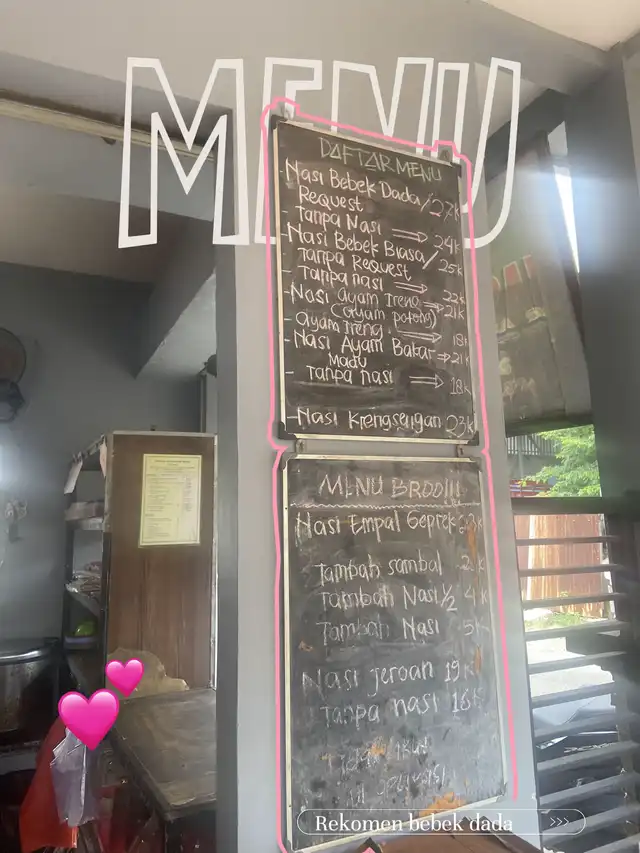 MENU
DAFTAR MENU
- Nasi Bebek Dada / 27k
Request
- Tanpa Nasi ⇒ 24k
- Nasi Bebek Biasa / 25k
Tanpa Request
- Tanpa nasi ⇒ 22k
- Nasi Ayam Ireng ⇒ 21k
(Ayam potong)
- Ayam Ireng ⇒ 18k
- Nasi Ayam Bakar ⇒ 21k
Madu
- Tanpa nasi ⇒ 18k
- Nasi Krengsengan 23k
MENU BROO!!!
Nasi Empal Geprek
Tambah sambal 2
Tambah Nasi 1/2 4
Tambah Nasi 5k
Nasi Jeroan 19k
Tanpa nasi 16k
Rekomen bebek dada >>>